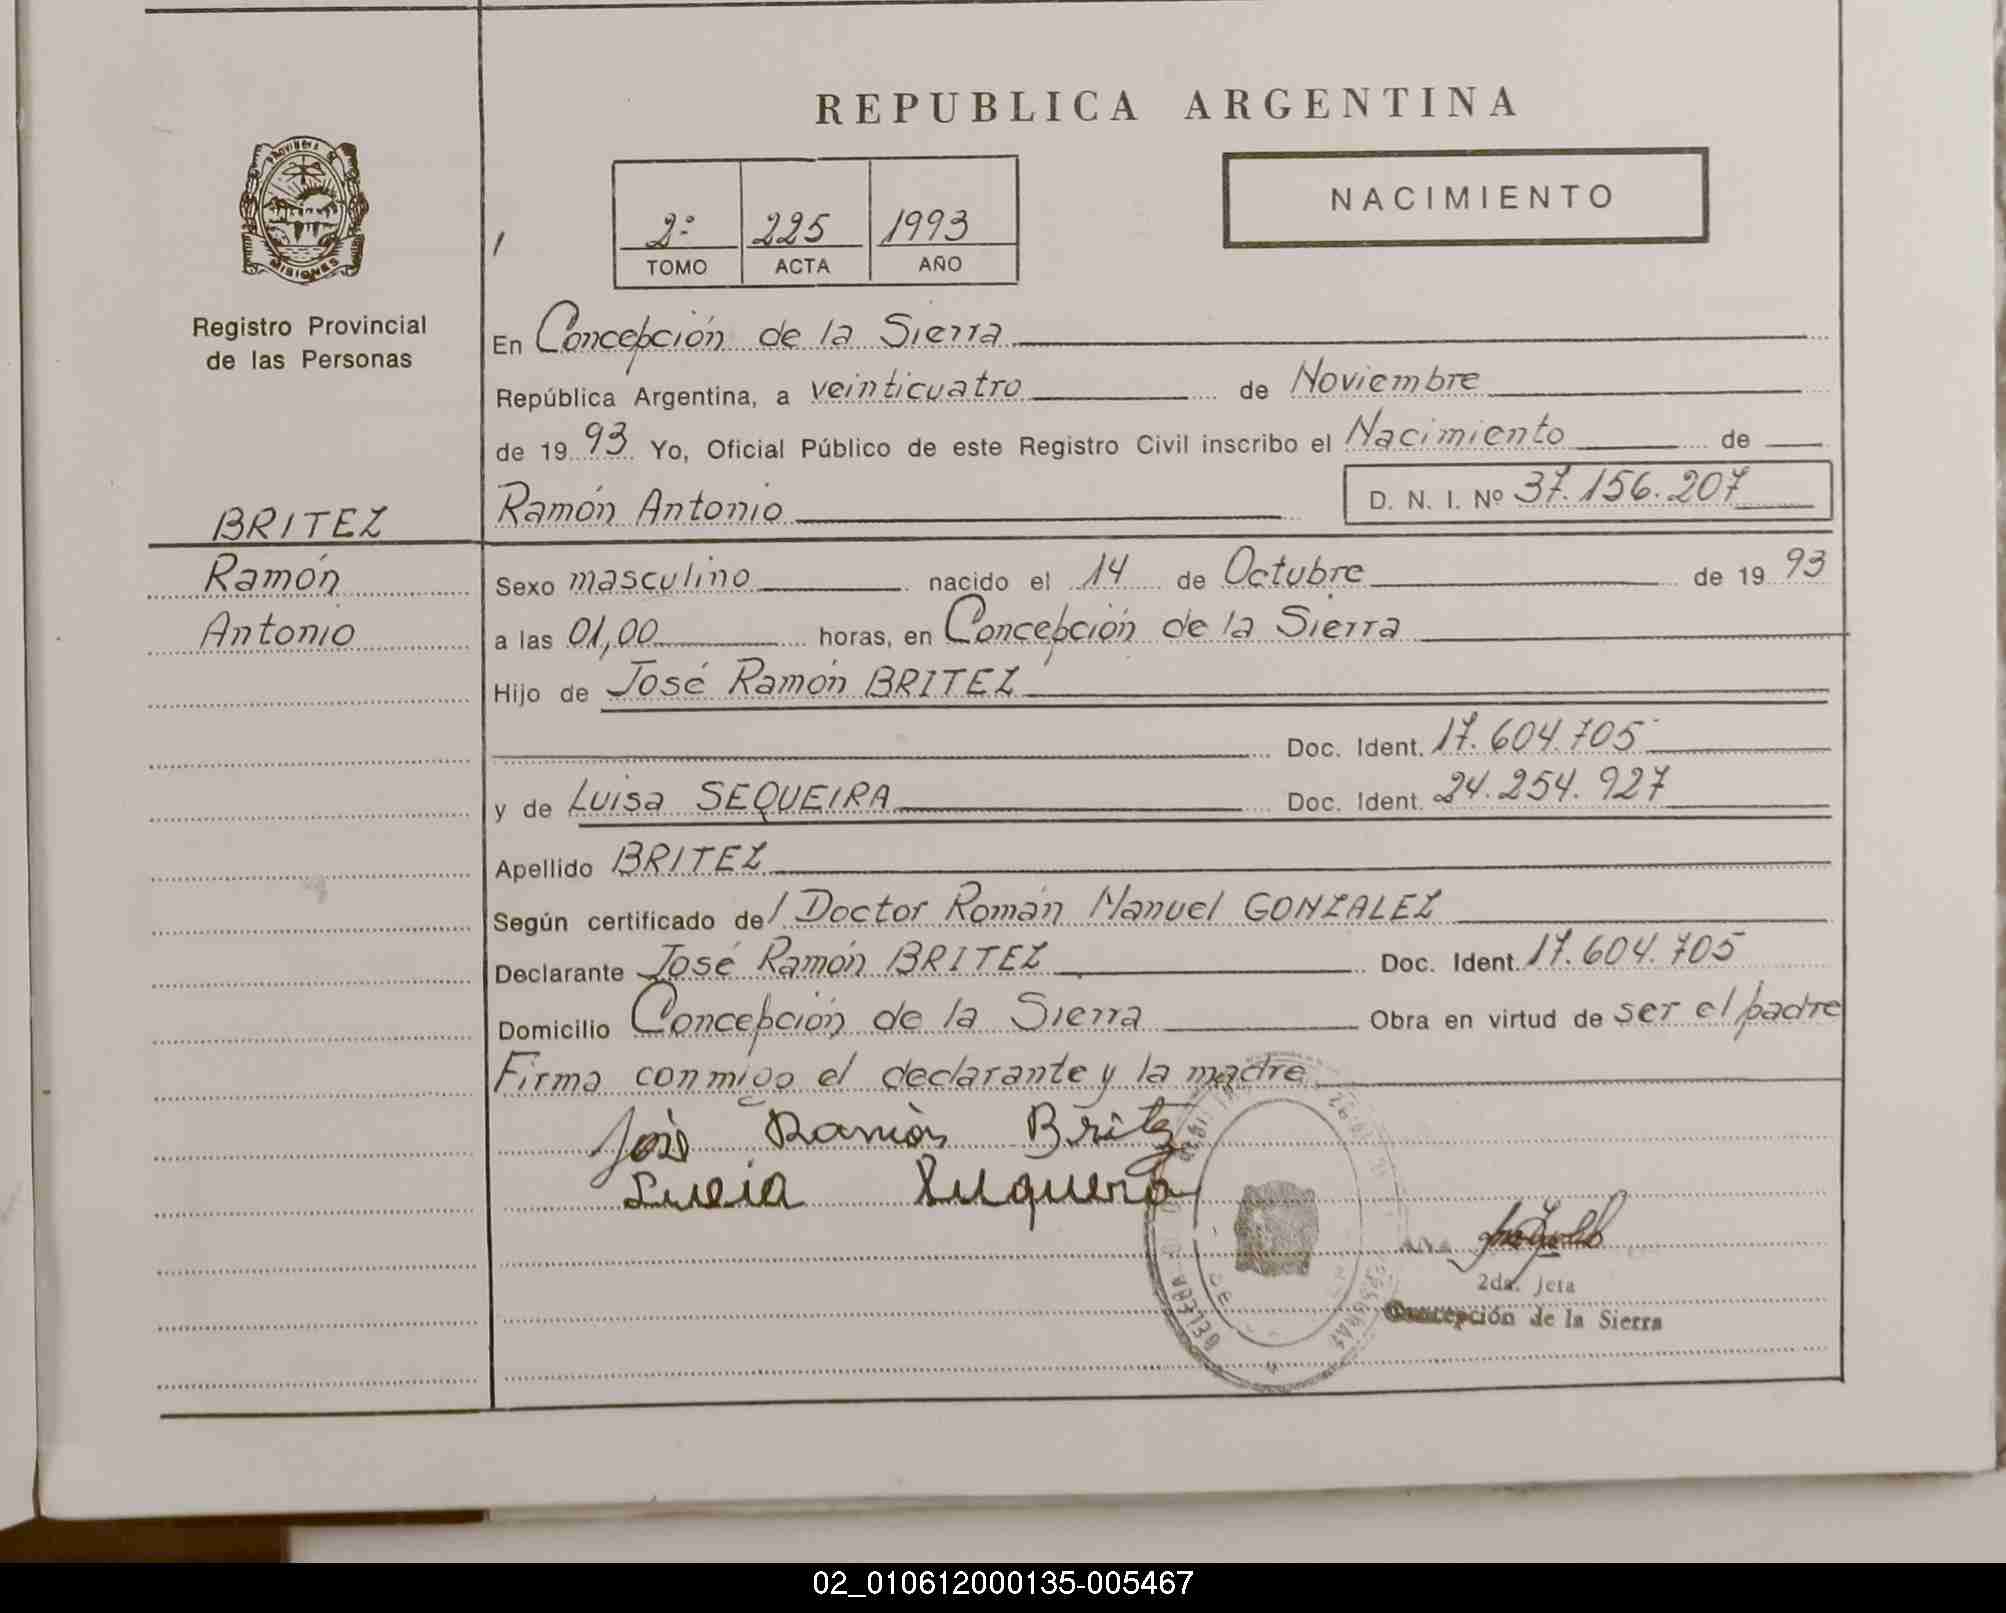 REPUBLICA ARGENTINA
PROVINCIA DE
MISIONES
Registro Provincial
de las Personas
2º 225 1993
TOMO ACTA AÑO
NACIMIENTO
En Concepción de la Sierra
República Argentina, a veinticuatro de Noviembre
de 1993 Yo, Oficial Público de este Registro Civil inscribo el Nacimiento de
Ramón Antonio D. N. I. Nº 37.156.207
BRITEZ
Ramón
Antonio
Sexo masculino nacido el 14 de Octubre de 1993
a las 01,00 horas, en Concepción de la Sierra
Hijo de José Ramón BRITEZ
Doc. Ident. 17.604.705
y de Luisa SEQUEIRA Doc. Ident. 24.254.927
Apellido BRITEZ
Según certificado del Doctor Román Manuel GONZALEZ
Declarante José Ramón BRITEZ Doc. Ident. 17.604.705
Domicilio Concepción de la Sierra Obra en virtud de ser el padre
Firma conmigo el declarante y la madre
José Ramón Britez
2da. Jefa
Concepción de la Sierra
02_010612000135-005467